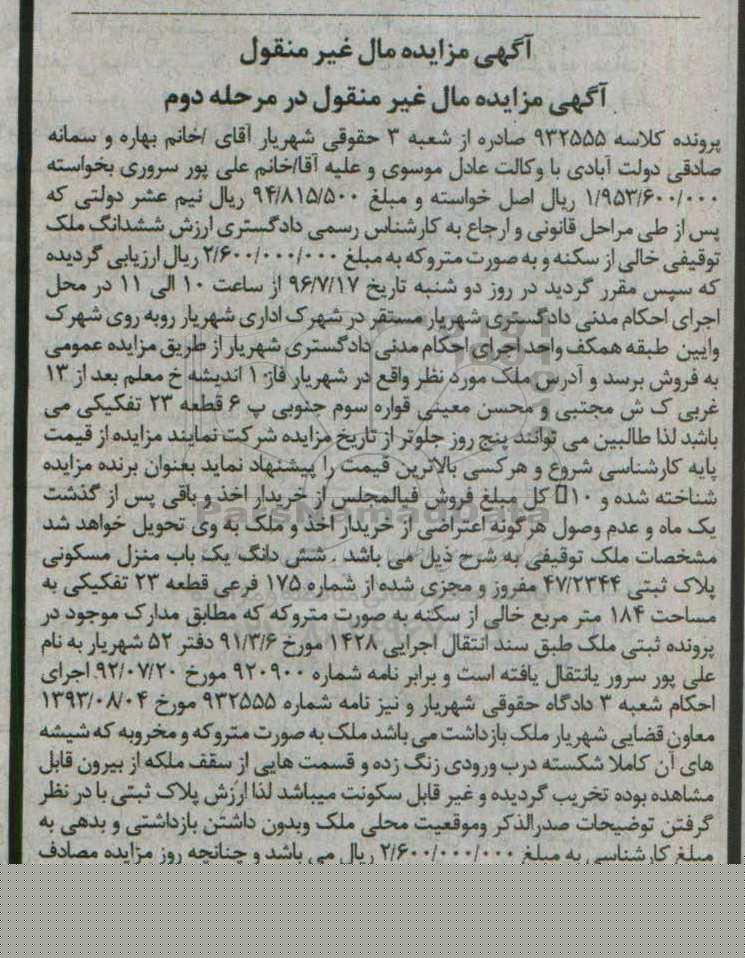 آگهی مزایده مال غیر منقول
آگهی مزایده مال غیر منقول در مرحله دوم
پرونده کلاسه ۹۳۲۵۵۵ صادره از شعبه ۳ حقوقی شهریار آقای /خانم بهاره و سمانه
صادقی دولت آبادی با وکالت عادل موسوی و علیه آقا/خانم علی پور سروری بخواسته
۱/۹۵۳/۶۰۰/۰۰۰ ریال اصل خواسته و مبلغ ۹۴/۸۱۵/۵۰۰ ریال نیم عشر دولتی که
پس از طی مراحل قانونی و ارجاع به کارشناس رسمی دادگستری ارزش ششدانگ ملک
توقیفی خالی از سکنه و به صورت متروکه به مبلغ ۲/۶۰۰/۰۰۰/۰۰۰ ریال ارزیابی گردیده
که سپس مقرر گردید در روز دو شنبه تاریخ ۹۶/۷/۱۷ از ساعت ۱۰ الی ۱۱ در محل
اجرای احکام مدنی دادگستری شهریار مستقر در شهرک اداری شهریار روبه روی شهرک
وایین طبقه همکف واحد اجرای احکام مدنی دادگستری شهریار از طریق مزایده عمومی
به فروش برسد و آدرس ملک مورد نظر واقع در شهریار فاز ۱ اندیشه خ معلم بعد از ۱۳
غربی ک ش مجتبی و محسن معینی قواره سوم جنوبی پ ۶ قطعه ۲۳ تفکیکی می
باشد لذا طالبین می توانند پنج روز جلوتر از تاریخ مزایده شرکت نمایند مزایده از قیمت
پایه کارشناسی شروع و هرکسی بالاترین قیمت را پیشنهاد نماید بعنوان برنده مزایده
شناخته شده و ۱۰ کل مبلغ فروش فیالمجلس از خریدار اخذ و باقی پس از گذشت
یک ماه و عدم وصول هرگونه اعتراضی از خریدار اخذ و ملک به وی تحویل خواهد شد
مشخصات ملک توقیفی به شرح ذیل می باشد . شش دانگ یک باب منزل مسکونی
پلاک ثبتی ۴۷/۲۳۴۴ مفروز و مجزی شده از شماره ۱۷۵ فرعی قطعه ۲۳ تفکیکی به
مساحت ۱۸۴ متر مربع خالی از سکنه به صورت متروکه که مطابق مدارک موجود در
پرونده ثبتی ملک طبق سند انتقال اجرایی ۱۴۲۸ مورخ ۹۱/۳/۶ دفتر ۵۲ شهریار به نام
علی پور سرور یانتقال یافته است و برابر نامه شماره ۹۲۰۹۰۰ مورخ ۹۲/۰۷/۲۰ اجرای
احکام شعبه ۳ دادگاه حقوقی شهریار و نیز نامه شماره ۹۳۲۵۵۵ مورخ ۱۳۹۳/۰۸/۰۴
معاون قضایی شهریار ملک بازداشت می باشد ملک به صورت متروکه و مخروبه که شیشه
های آن کاملا شکسته درب ورودی زنگ زده و قسمت هایی از سقف ملکه از بیرون قابل
مشاهده بوده تخریب گردیده و غیر قابل سکونت میباشد لذا ارزش پلاک ثبتی با در نظر
گرفتن توضیحات صدرالذکر وموقعیت محلی ملک وبدون داشتن بازداشتی و بدهی به
مبلغ کارشناسی به مبلغ ۲/۶۰۰/۰۰۰/۰۰۰ ریال می باشد و چنانچه روز مزایده مصادف
ParsNamadData